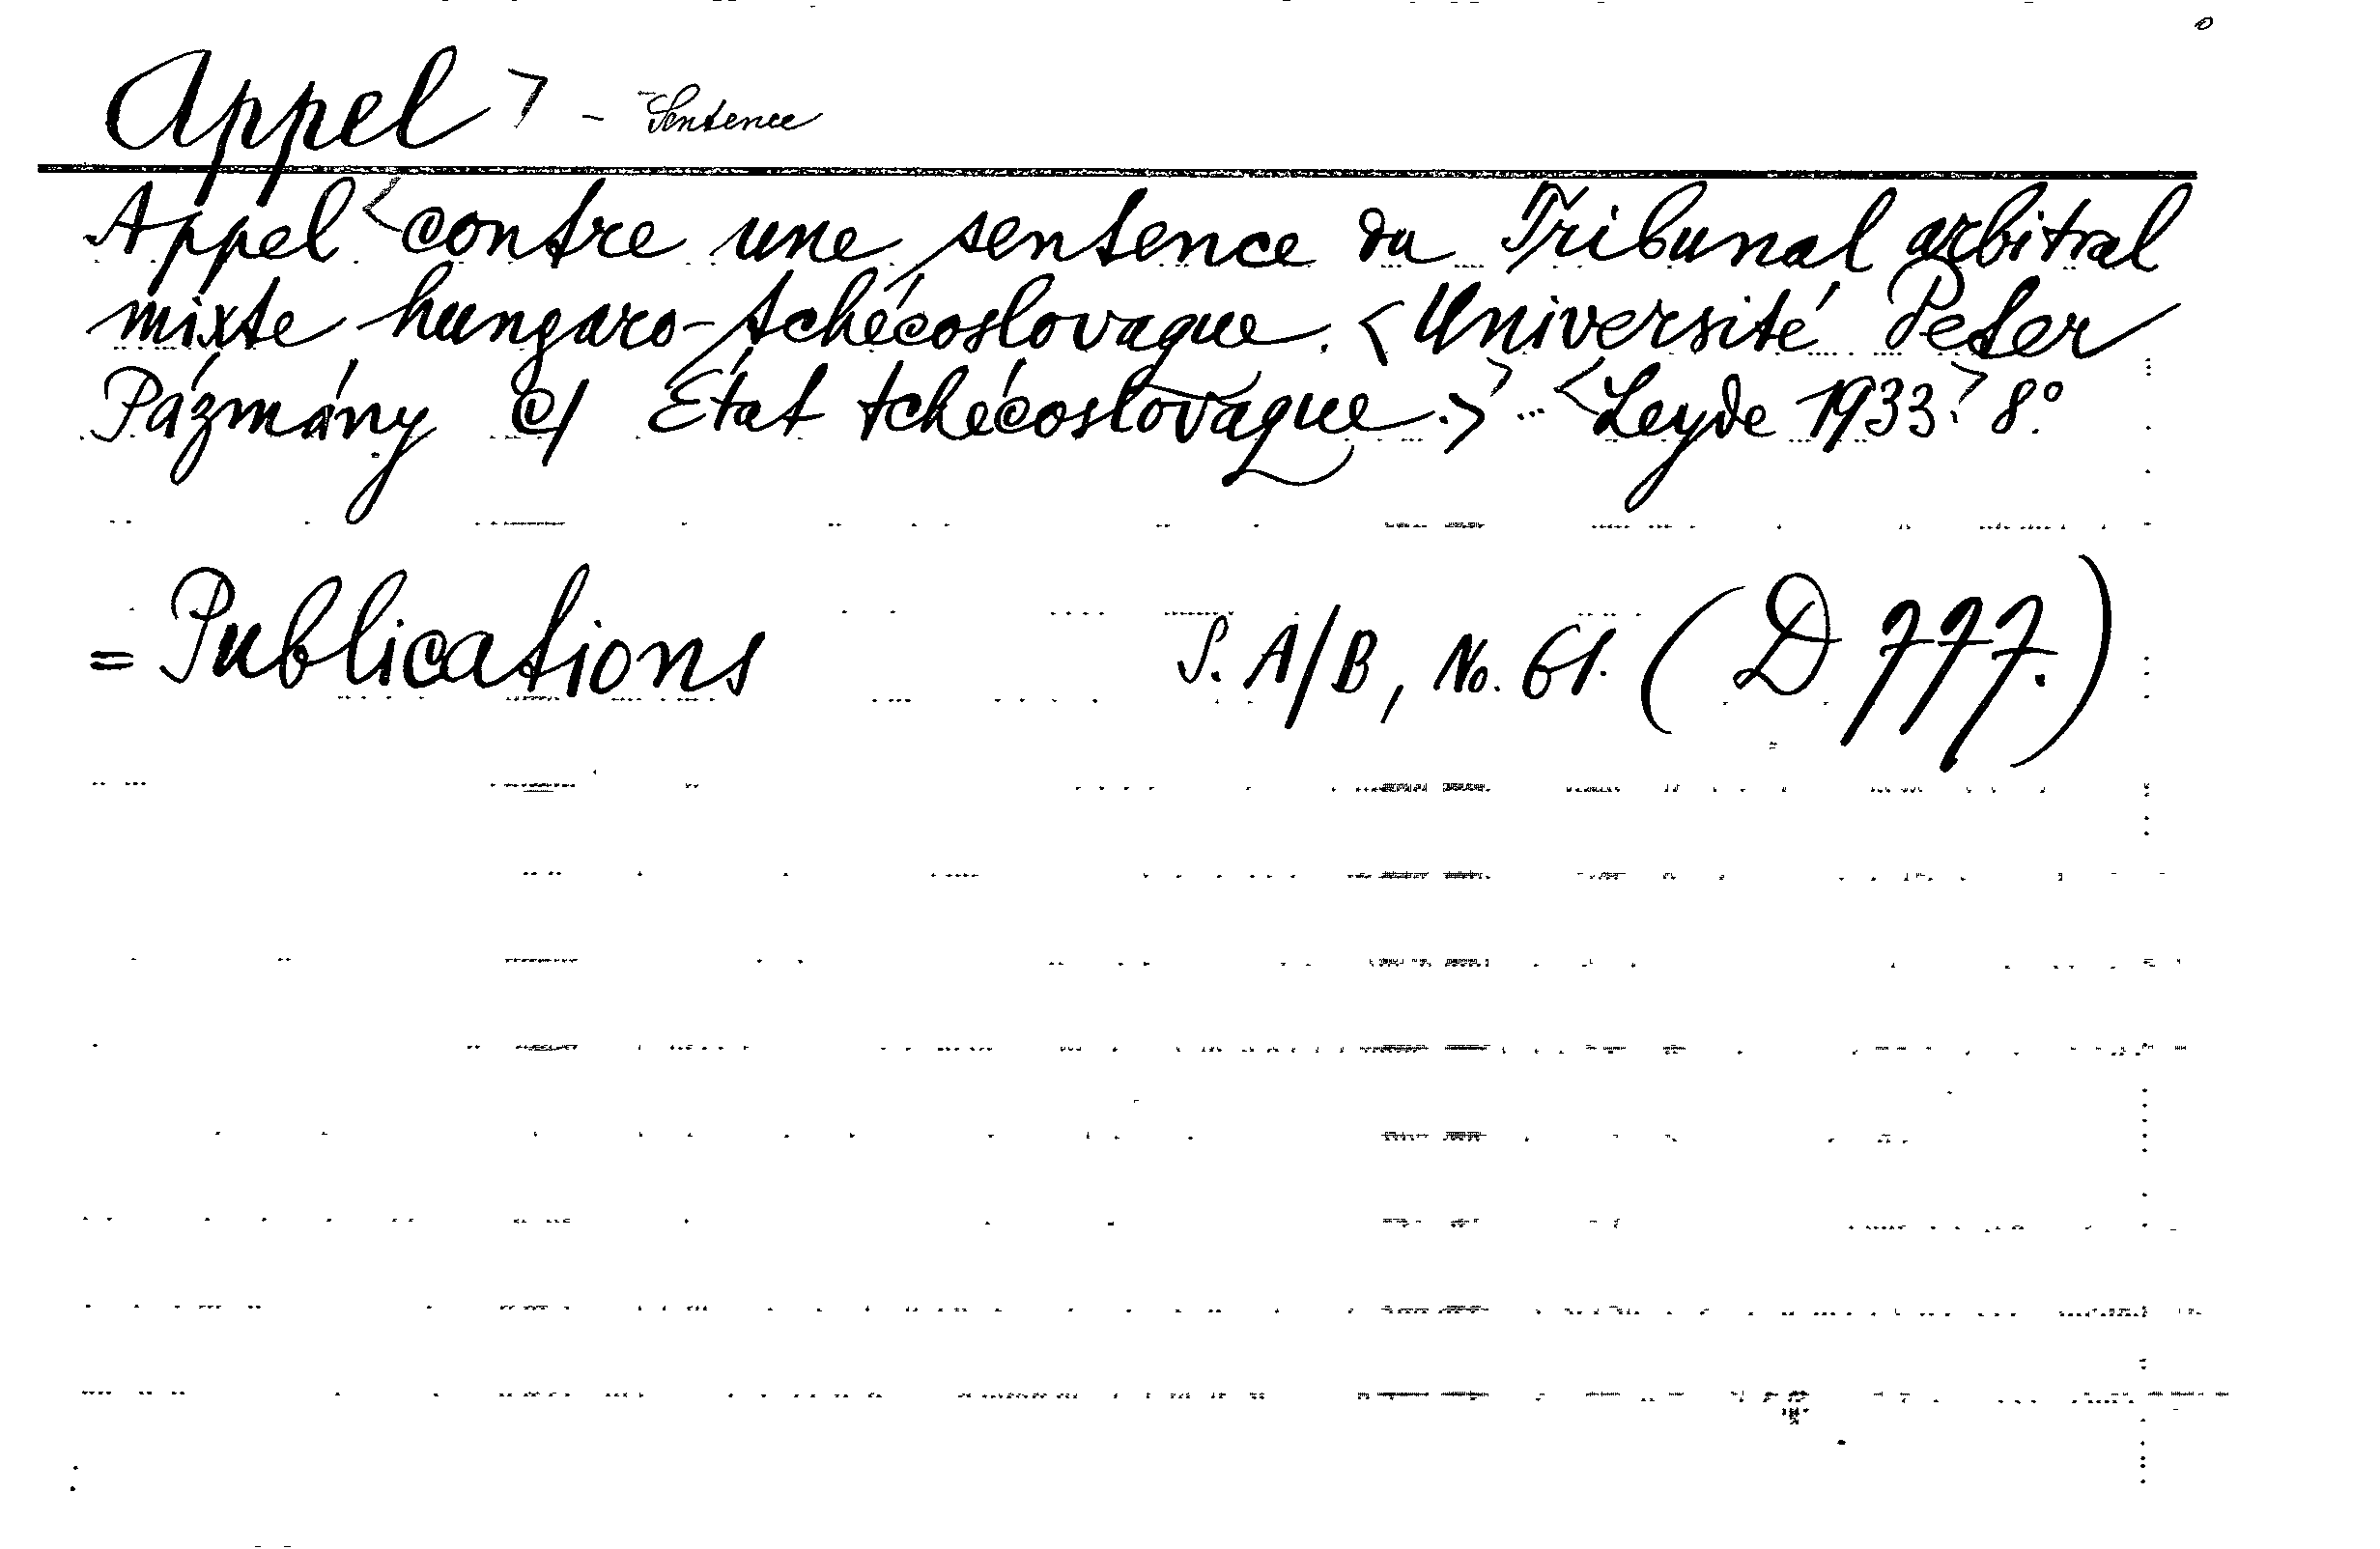 Appel > - Sentence
Appel < contre une sentence du Tribunal arbitral
mixte hungaro-tchécoslovaque. < Université Peter
Pázmány c/ État tchécoslovaque. > > - < Leyde 1933. > 8°.
= Publications S. A/B, No. 61. (D 777.)